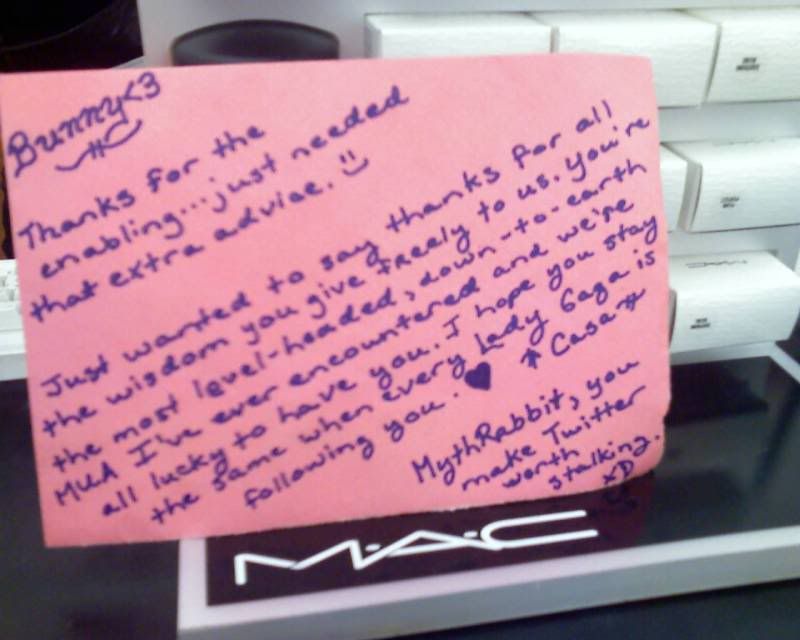 Bunny<3
Thanks for the
enabling...just needed
that extra advice. :)
Just wanted to say thanks for all
the wisdom you give freely to us. You're
the most level-headed, down-to-earth
MUA I've ever encountered and we're
all lucky to have you. I hope you stay
the same when every Lady Gaga is
following you. ♥
↑ Casa#
MythRabbit, you
make Twitter
worth
stalking.
xD
M·A·C